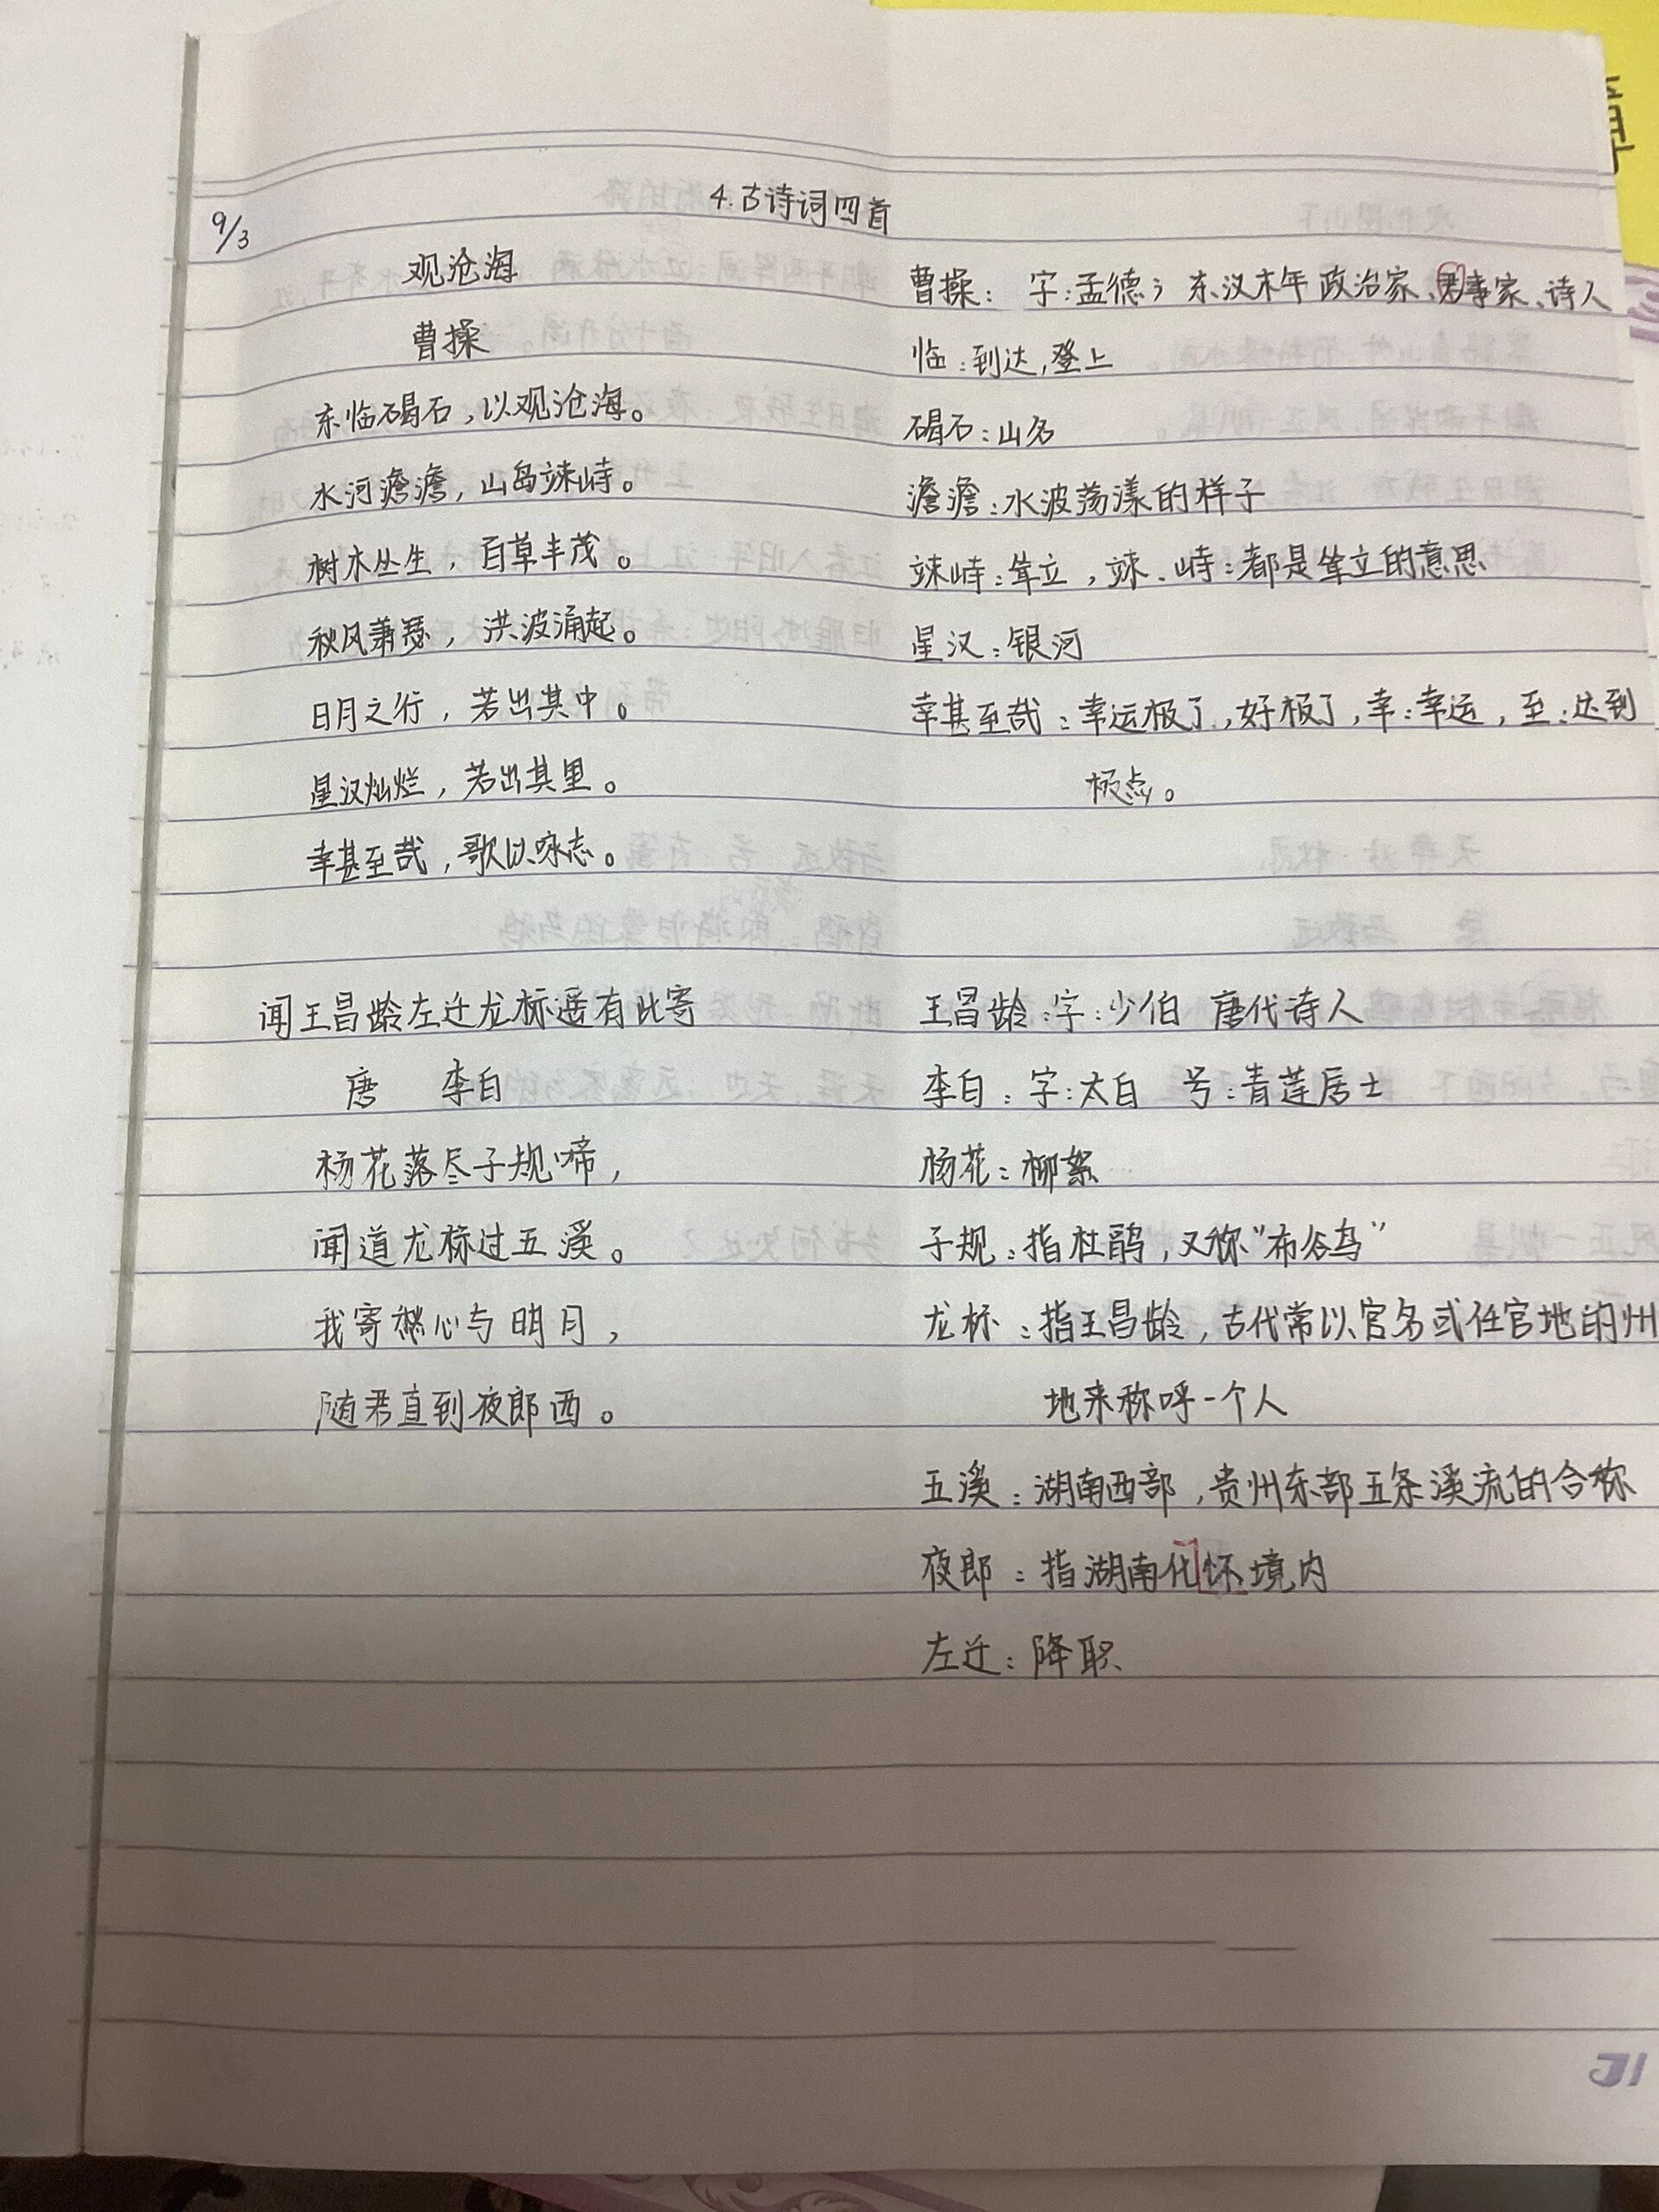 4.古诗词四首
9/3
观沧海
曹操
东临碣石,以观沧海。
水河澹澹,山岛竦峙。
树木丛生,百草丰茂。
秋风萧瑟,洪波涌起。
日月之行,若出其中。
星汉灿烂,若出其里。
幸甚至哉,歌以咏志。
曹操: 字:孟德; 东汉末年 政治家、军事家、诗人
临:到达,登上
碣石:山名
澹澹:水波荡漾的样子
竦峙:耸立,竦、峙:都是耸立的意思
星汉:银河
幸甚至哉:幸运极了,好极了,幸:幸运,至:达到
极点。
闻王昌龄左迁龙标遥有此寄
唐 李白
杨花落尽子规啼,
闻道龙标过五溪。
我寄愁心与明月,
随君直到夜郎西。
王昌龄:字:少伯 唐代诗人
李白:字:太白 号:青莲居士
杨花:柳絮
子规:指杜鹃,又称“布谷鸟”
龙标:指王昌龄,古代常以官名或任官地的州
地来称呼一个人
五溪:湖南西部,贵州东部五条溪流的合称
夜郎:指湖南化怀境内
左迁:降职